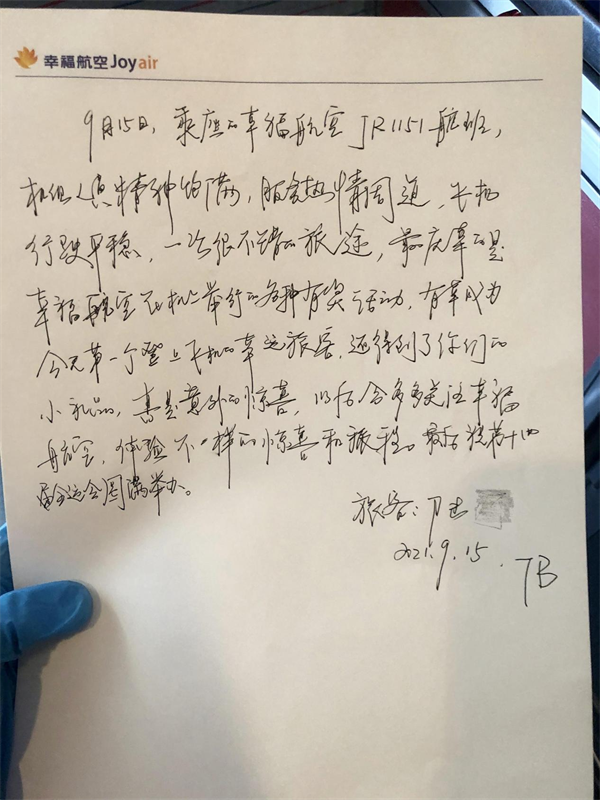 幸福航空Joyair
9月15日，乘座的幸福航空JR1151航班，
机组人员精神饱满，服务热情周道，飞机
行驶平稳，一次很不错的旅途，最庆幸的是
幸福航空在机上举行的各种有奖活动，有幸成为
今天第一个登上飞机的幸运旅客，还得到了你们的
小礼品，真是意外的惊喜，以后会多多关注幸福
航空，体验不一样的惊喜和旅程。最后祝第十四
届全运会圆满举办。
旅客：
2021.9.15.
7B